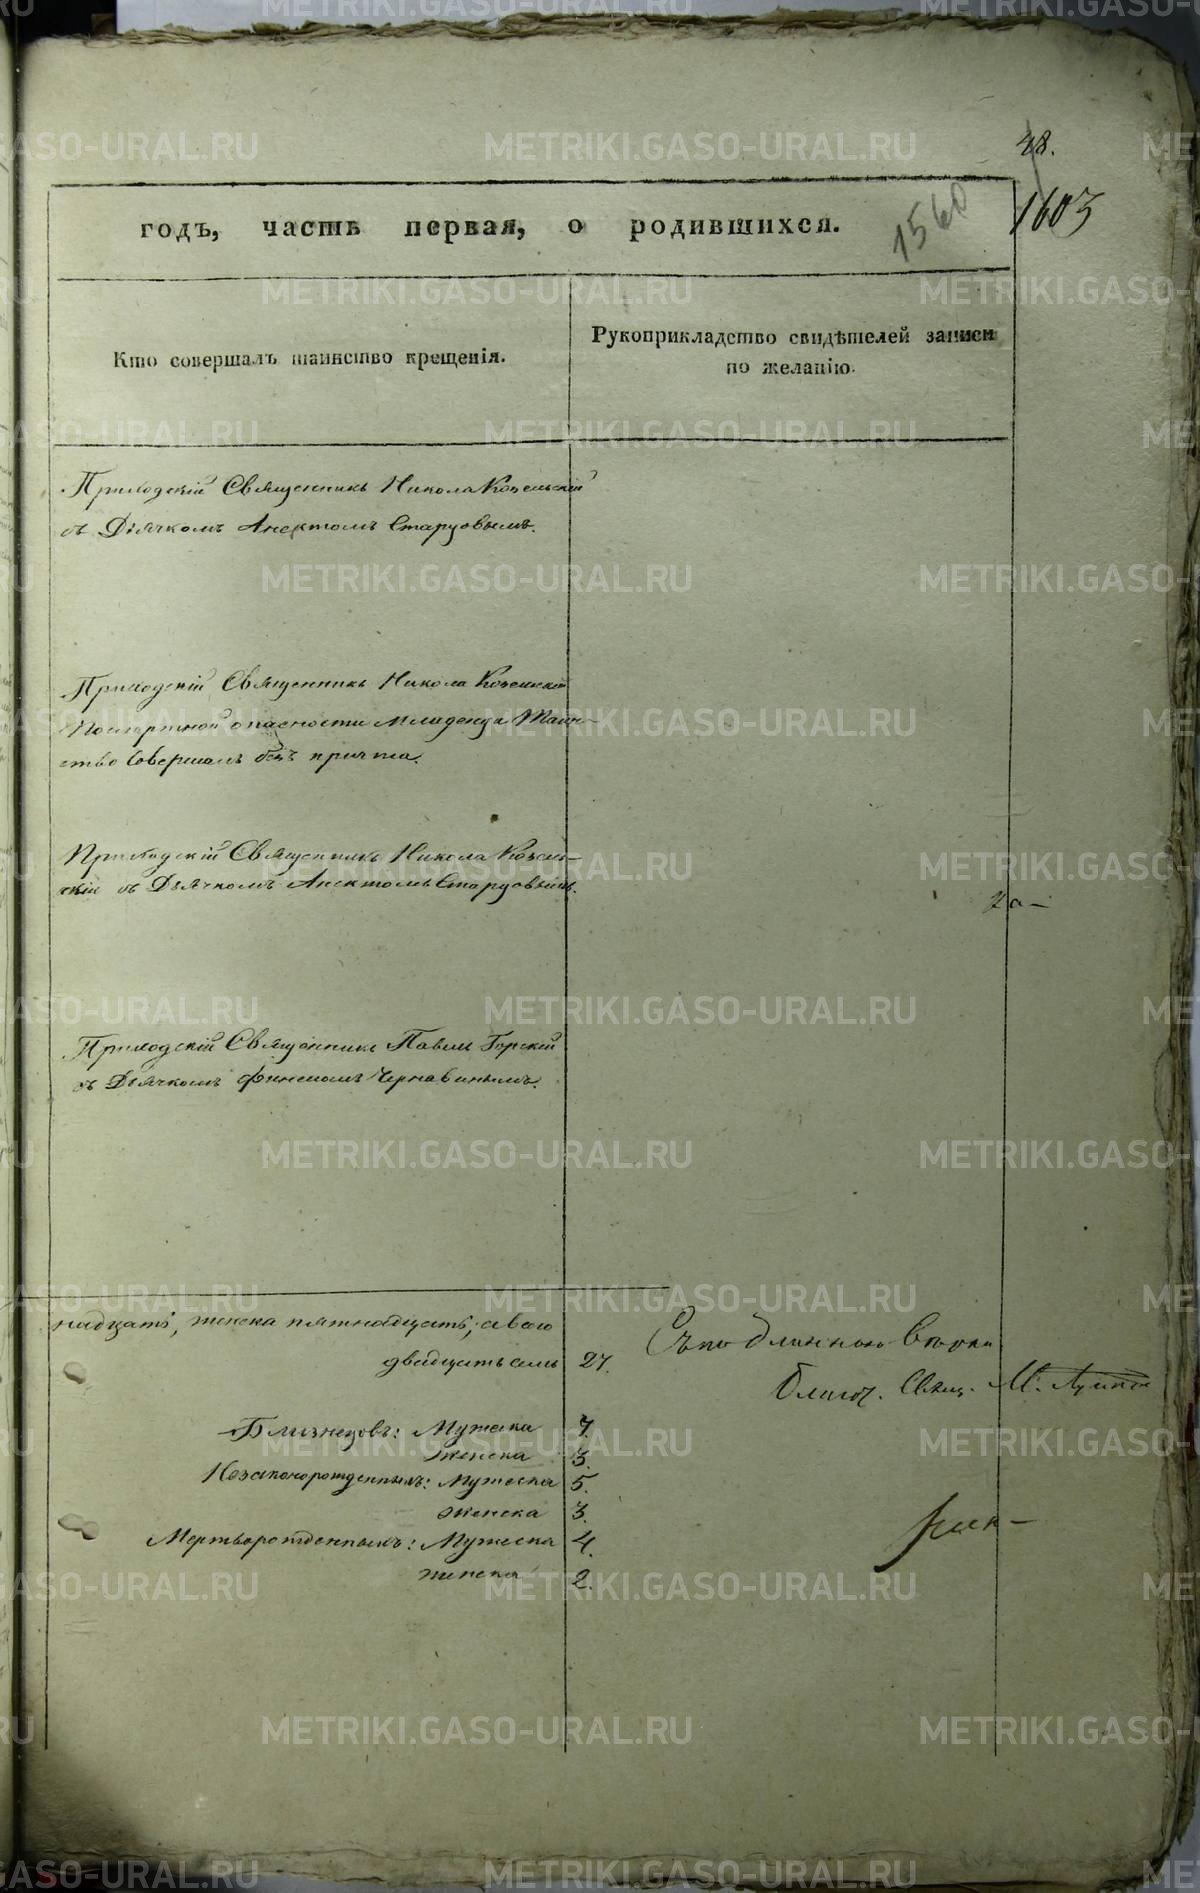 48.
1603
1560
годъ, часть первая, о родившихся.
Кто совершалъ таинство крещенія.
Рукоприкладство свидѣтелей записи
по желанію.
Приходскій Священникъ Никола Козельскій
съ Дьячкомъ Анектомъ Старцовымъ.
Приходскій Священникъ Никола Козельскій
опасности младенца Таин-
ство совершалъ безъ причта.
Приходскій Священникъ Никола Козель-
скій съ Дьячкомъ Анектомъ Старцовымъ.
Приходскій Священникъ Павелъ Горскій
съ Дьячкомъ Финеномъ Чернавинымъ.
надцать, женска пятнадцать, а всего
двадцать семь 27.
Близнецовъ: Мужеска 7.
женска 3.
Незаконорожденныхъ: Мужеска 5.
женска 3.
Мертворожденныхъ: Мужеска 4.
женска 2.
Съ подлинною вѣрна
Благоч. Свящ. М.
METRIKI.GASO-URAL.RU